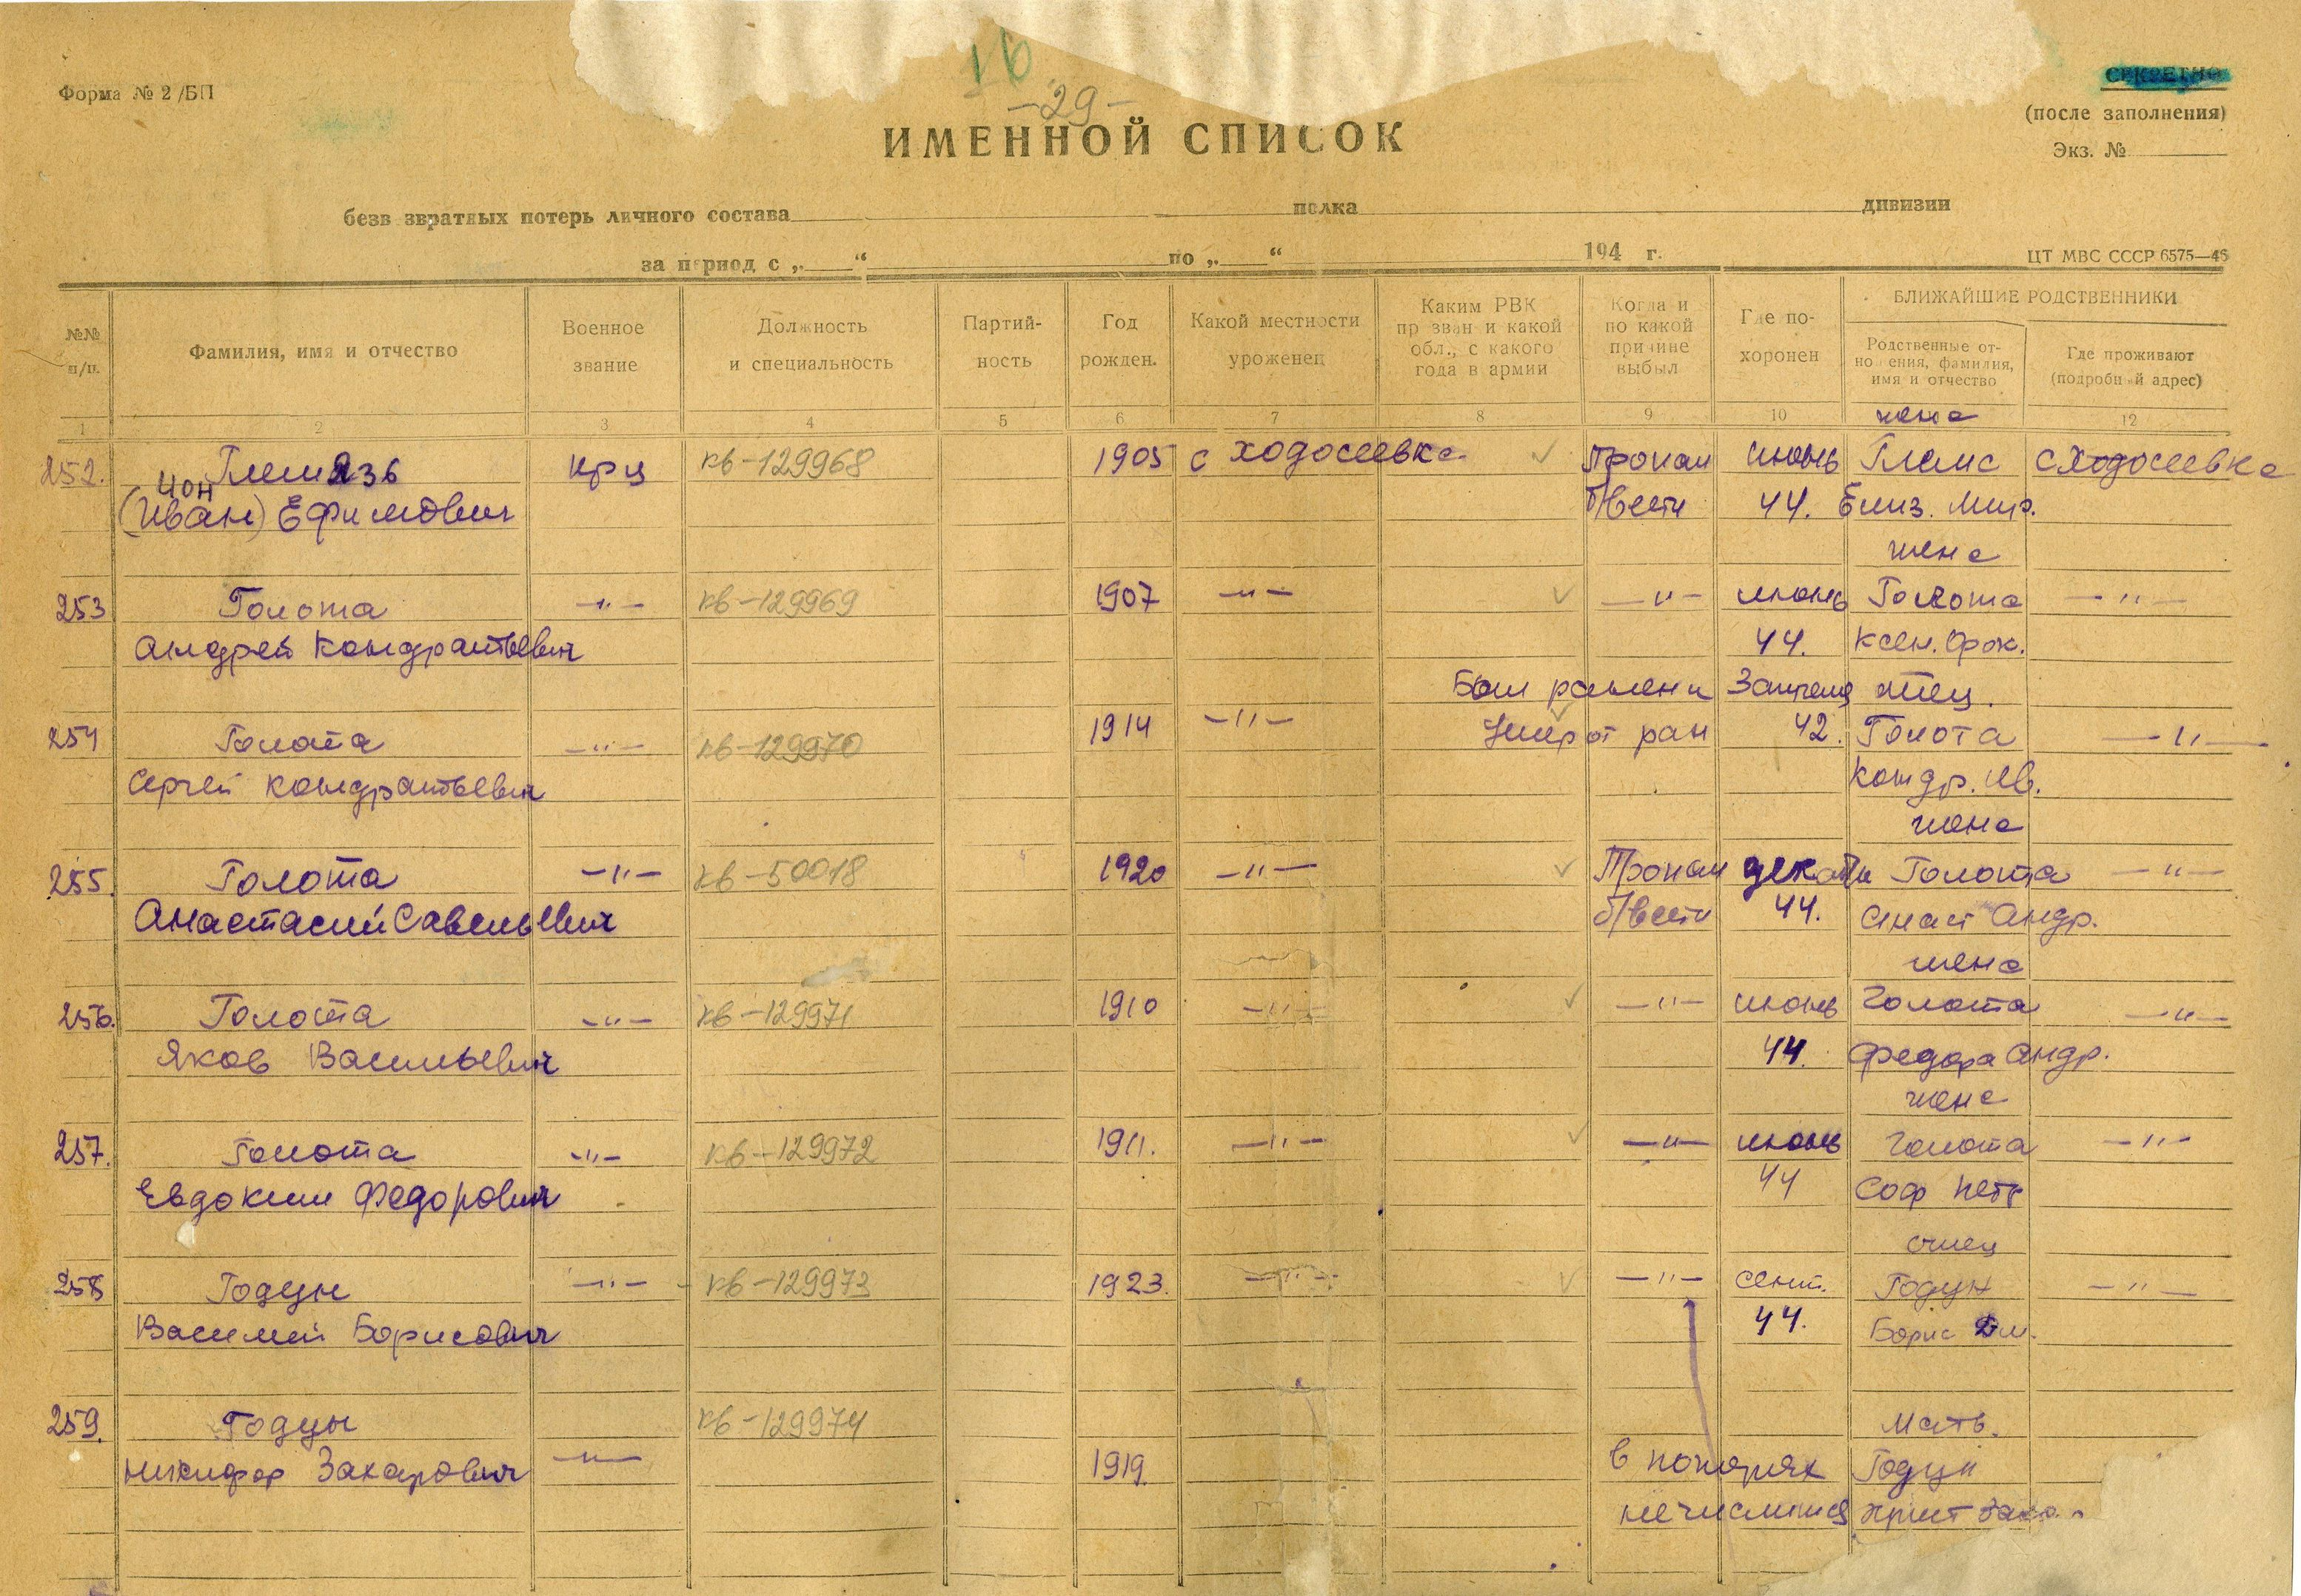 16
-29-
Форма № 2/БП
СЕКРЕТНО
(после заполнения)
Экз. №
ИМЕННОЙ СПИСОК
безв звратных потерь личного состава полка дивизии
за период с „ “ по „ “ 194 г.
ЦТ МВС СССР 6575—46
№№ п/п.
Фамилия, имя и отчество
Военное звание
Должность и специальность
Партий-
ность
Год рожден.
Какой местности уроженец
Каким РВК
пр зван и какой
обл., с какого
года в армии
Когда и
по какой
причине
выбыл
Где по-
хоронен
БЛИЖАЙШИЕ РОДСТВЕННИКИ
Родственные от-
но ения, фамилия,
имя и отчество
Где проживают
(подробный адрес)
1 2 3 4 5 6 7 8 9 10 12
жена
252. крц кв-129968 1905 с Ходосеевка Пропал июнь с Ходосеевка
Ион
(Иван) Ефимович б/вести 44. Елиз. Мир.
жена
253 Голота -"- кв-129969 1907 -"- -"- июнь Голота -"-
Андрей Кондратьевич 44. Ксен. Фок.
Был ранен и отец.
254 Голота -"- кв-129970 1914 -"- Умер от ран 42. Голота -"-
Сергей Кондратьевич Кондр. Ив.
жена
255. Голота -"- кв-50018 1920 -"- Пропал декабрь Голота -"-
Анастасий Савельевич б/вести 44. Анаст Андр.
жена
256. Голота -"- кв-129971 1910 -"- -"- июнь Голота -"-
Яков Васильевич 44. Федора Андр.
жена
257. Голота -"- кв-129972 1911. -"- -"- июнь Голота -"-
Евдоким Федорович 44 Соф Петр
отец
258 Годун -"- кв-129973 1923. -"- -"- сент. Годун -"-
Василий Борисович 44. Борис Дм.
259. Годун кв-129974 Мать.
Никифор Захарович -"- 1919. в потерях Годун
не числится